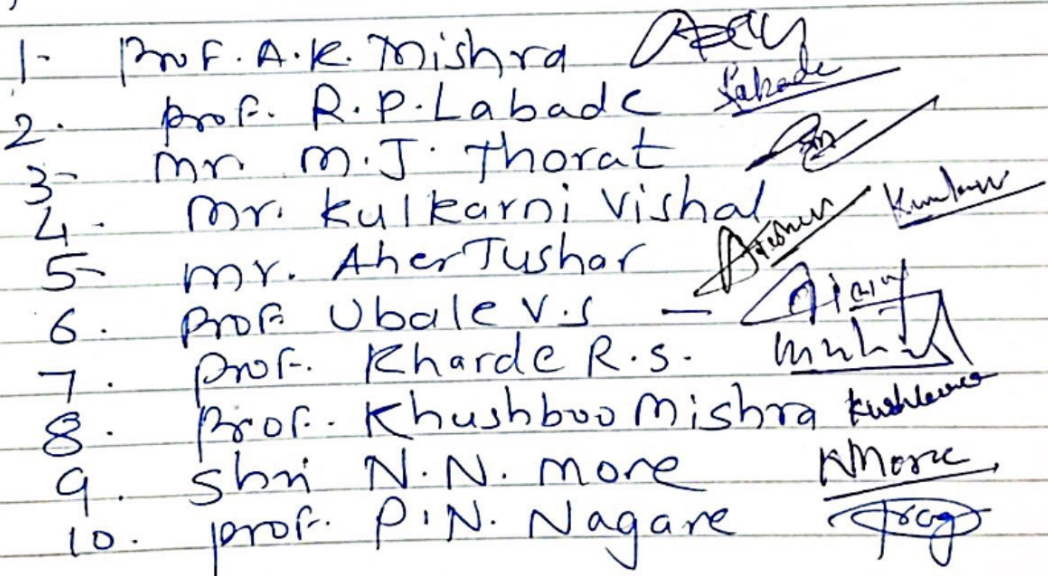 1- Prof. A.K. Mishra
2. Prof. R.P. Labade Labade
3- Mr. M.J. Thorat
4- Mr. Kulkarni Vishal
5- Mr. Aher Tushar
6. Prof. Ubale V.S —
7. Prof. Kharde R.S.
8. Prof. Khushboo Mishra
9. Shri N.N. More NMore
10. Prof. P.N. Nagare